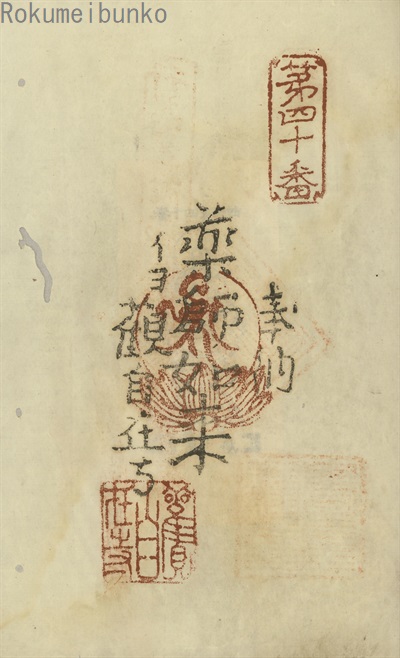 Rokumeibunko
第四十番
奉納
薬師如来
伊ヨ
観自在寺